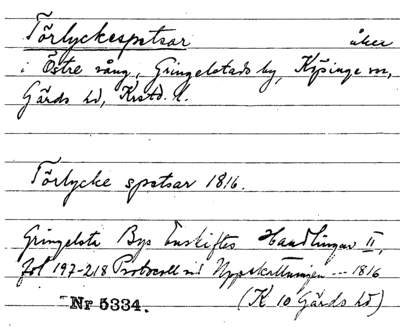 Törlyckespetsar åker
i Östre vång, Gringelstads by, Köpinge sn,
Gärds hd, Krstd. l.
Törlycke spetsar 1816.
Gringelsta Bys Enskiftes Handlingar II,
fol 197-218 Protocoll vid Uppskattningen --- 1816
Nr 5334. (K 10 Gärds hd)